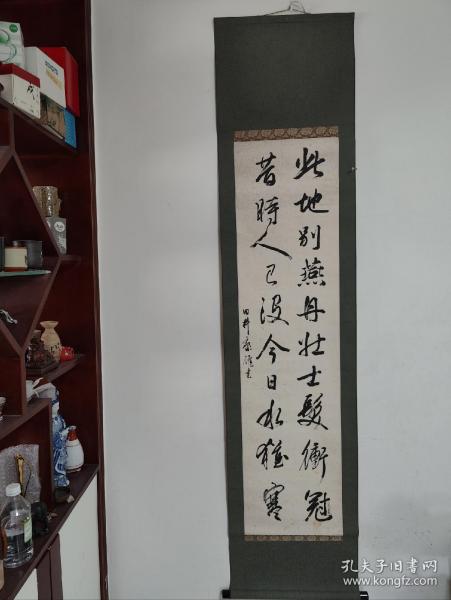 此地別燕丹壮士髮衝冠
昔時人已没今日水猶寒
孔夫子旧书网
www.kongfz.com